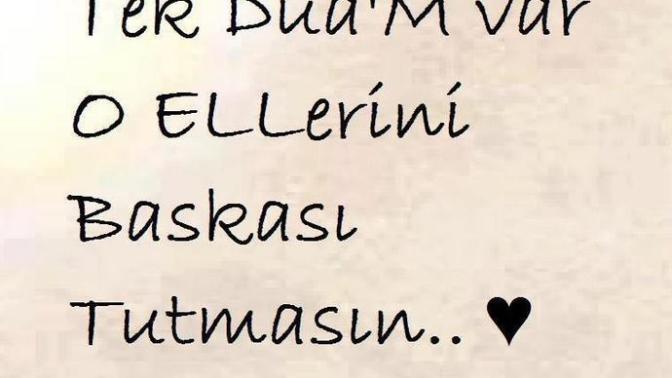 Tek Dua'M var
O ELLerini
Baskası
Tutmasın.. ♥